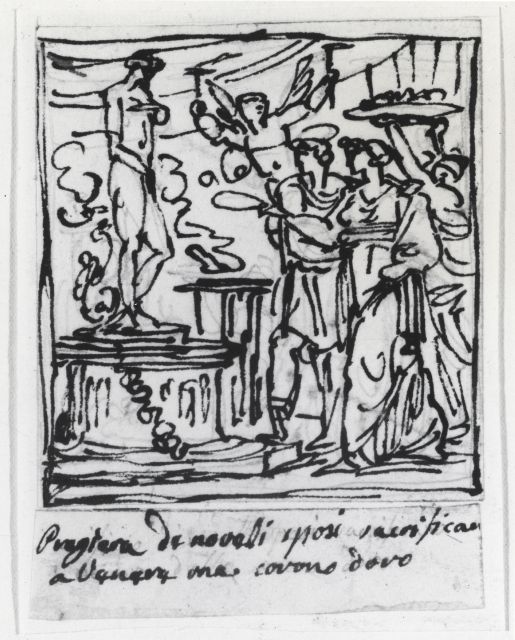 Pregiera de noveli sposi sacrifican
a Venere una corona doro